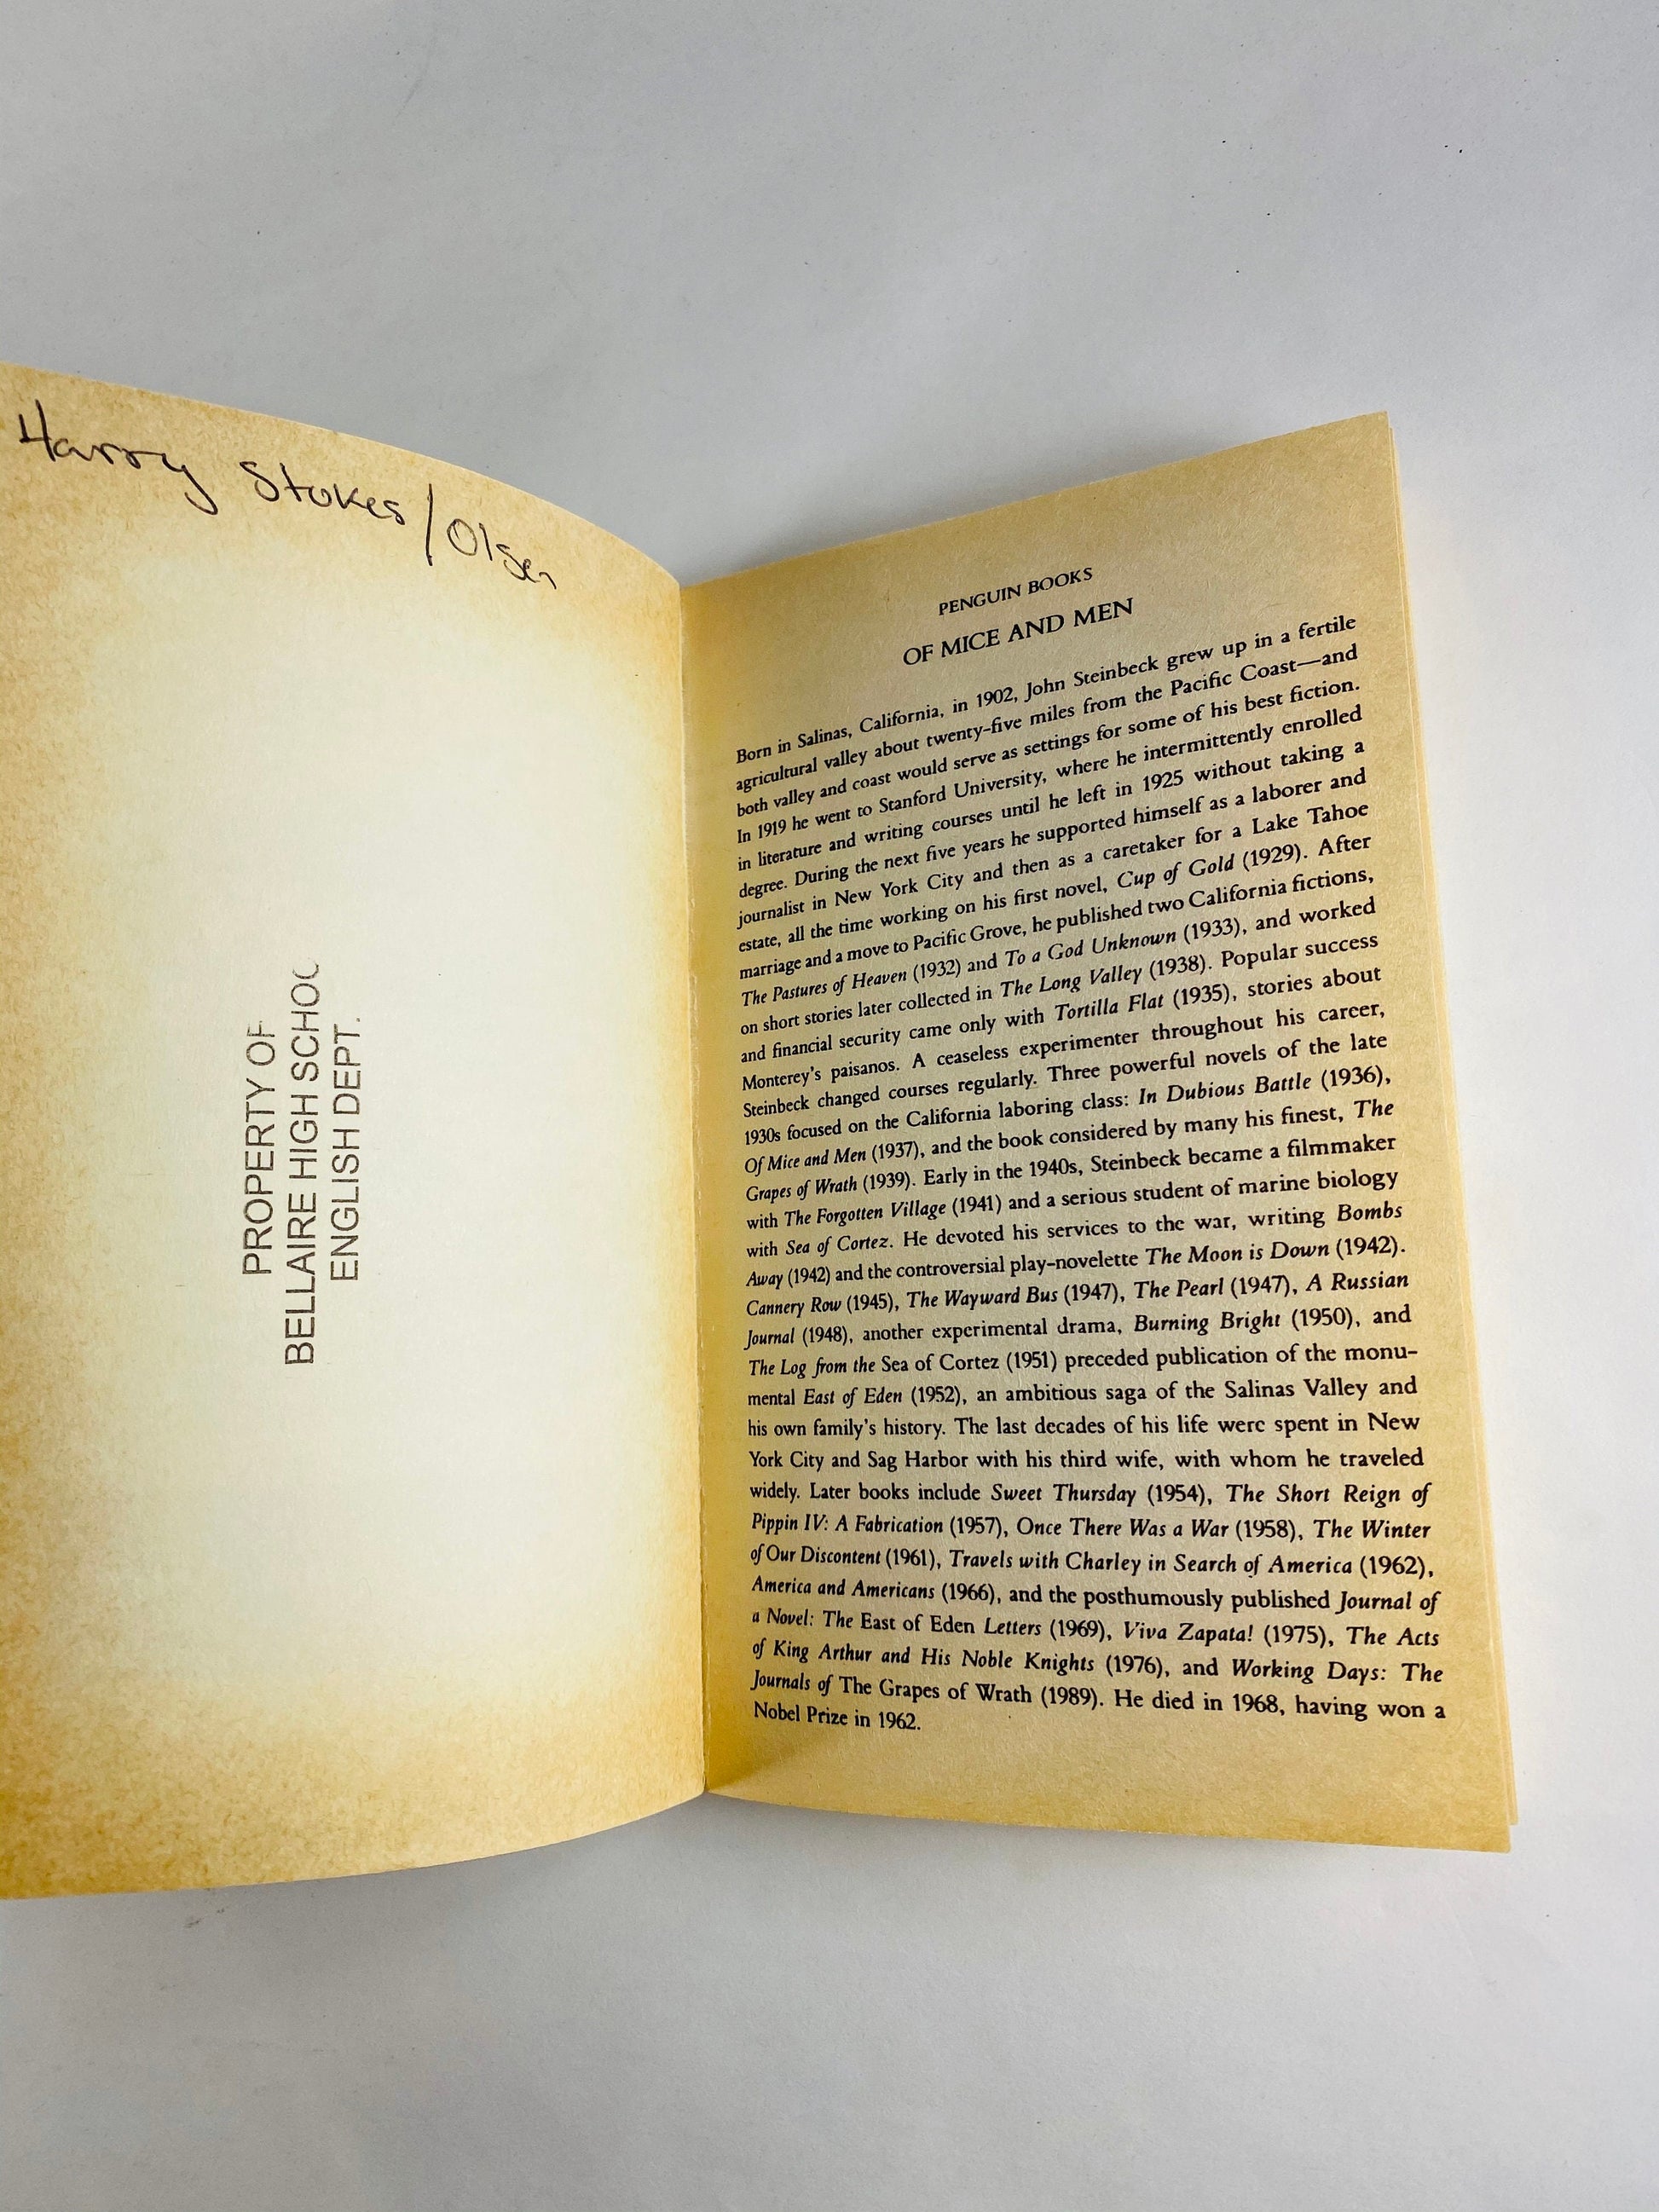 Harry Stokes/Olsen
PROPERTY OF
BELLAIRE HIGH SCHOO
ENGLISH DEPT.
PENGUIN BOOKS
OF MICE AND MEN
Born in Salinas, California, in 1902, John Steinbeck grew up in a fertile
agricultural valley about twenty-five miles from the Pacific Coast—and
both valley and coast would serve as settings for some of his best fiction.
In 1919 he went to Stanford University, where he intermittently enrolled
in literature and writing courses until he left in 1925 without taking a
degree. During the next five years he supported himself as a laborer and
journalist in New York City and then as a caretaker for a Lake Tahoe
estate, all the time working on his first novel, Cup of Gold (1929). After
marriage and a move to Pacific Grove, he published two California fictions,
The Pastures of Heaven (1932) and To a God Unknown (1933), and worked
on short stories later collected in The Long Valley (1938). Popular success
and financial security came only with Tortilla Flat (1935), stories about
Monterey's paisanos. A ceaseless experimenter throughout his career,
Steinbeck changed courses regularly. Three powerful novels of the late
1930s focused on the California laboring class: In Dubious Battle (1936),
Of Mice and Men (1937), and the book considered by many his finest, The
Grapes of Wrath (1939). Early in the 1940s, Steinbeck became a filmmaker
with The Forgotten Village (1941) and a serious student of marine biology
with Sea of Cortez. He devoted his services to the war, writing Bombs
Away (1942) and the controversial play-novelette The Moon is Down (1942).
Cannery Row (1945), The Wayward Bus (1947), The Pearl (1947), A Russian
Journal (1948), another experimental drama, Burning Bright (1950), and
The Log from the Sea of Cortez (1951) preceded publication of the monu-
mental East of Eden (1952), an ambitious saga of the Salinas Valley and
his own family's history. The last decades of his life were spent in New
York City and Sag Harbor with his third wife, with whom he traveled
widely. Later books include Sweet Thursday (1954), The Short Reign of
Pippin IV: A Fabrication (1957), Once There Was a War (1958), The Winter
of Our Discontent (1961), Travels with Charley in Search of America (1962),
America and Americans (1966), and the posthumously published Journal of
a Novel: The East of Eden Letters (1969), Viva Zapata! (1975), The Acts
of King Arthur and His Noble Knights (1976), and Working Days: The
Journals of The Grapes of Wrath (1989). He died in 1968, having won a
Nobel Prize in 1962.